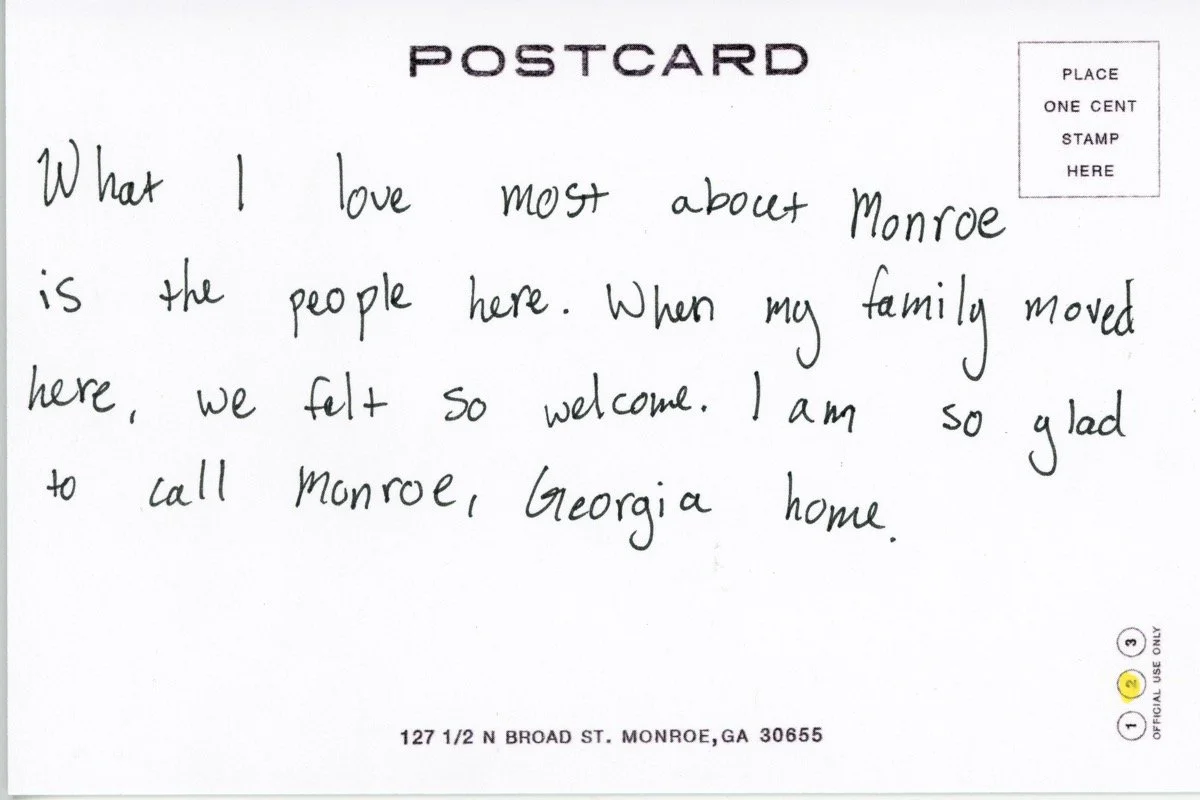 POSTCARD
PLACE
ONE CENT
STAMP
HERE
What I love most about Monroe
is the people here. When my family moved
here, we felt so welcome. I am so glad
to call Monroe, Georgia home.
1 2 3
OFFICIAL USE ONLY
127 1/2 N BROAD ST. MONROE, GA 30655